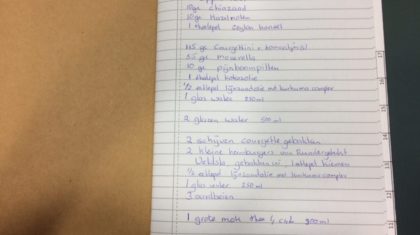 10gr chiazaad
10gr hazelnoten
1 theelepel Ceylon kaneel
115 gr Courgettini
55 gr mozzarella
10 gr pijnboompitten
1 theelepel kokosolie
1/2 eetlepel lijnzaadolie met kurkuma
1 glas water 250 ml
2 glazen water 500 ml
2 schijven courgette gebakken
2 kleine hamburgers van Rundergehakt
Veldsla, gebakken ei, 1 eetlepel kiemen
1/2 eetlepel lijnzaadolie met kurkuma
1 glas water 250 ml
1 grote mok thee